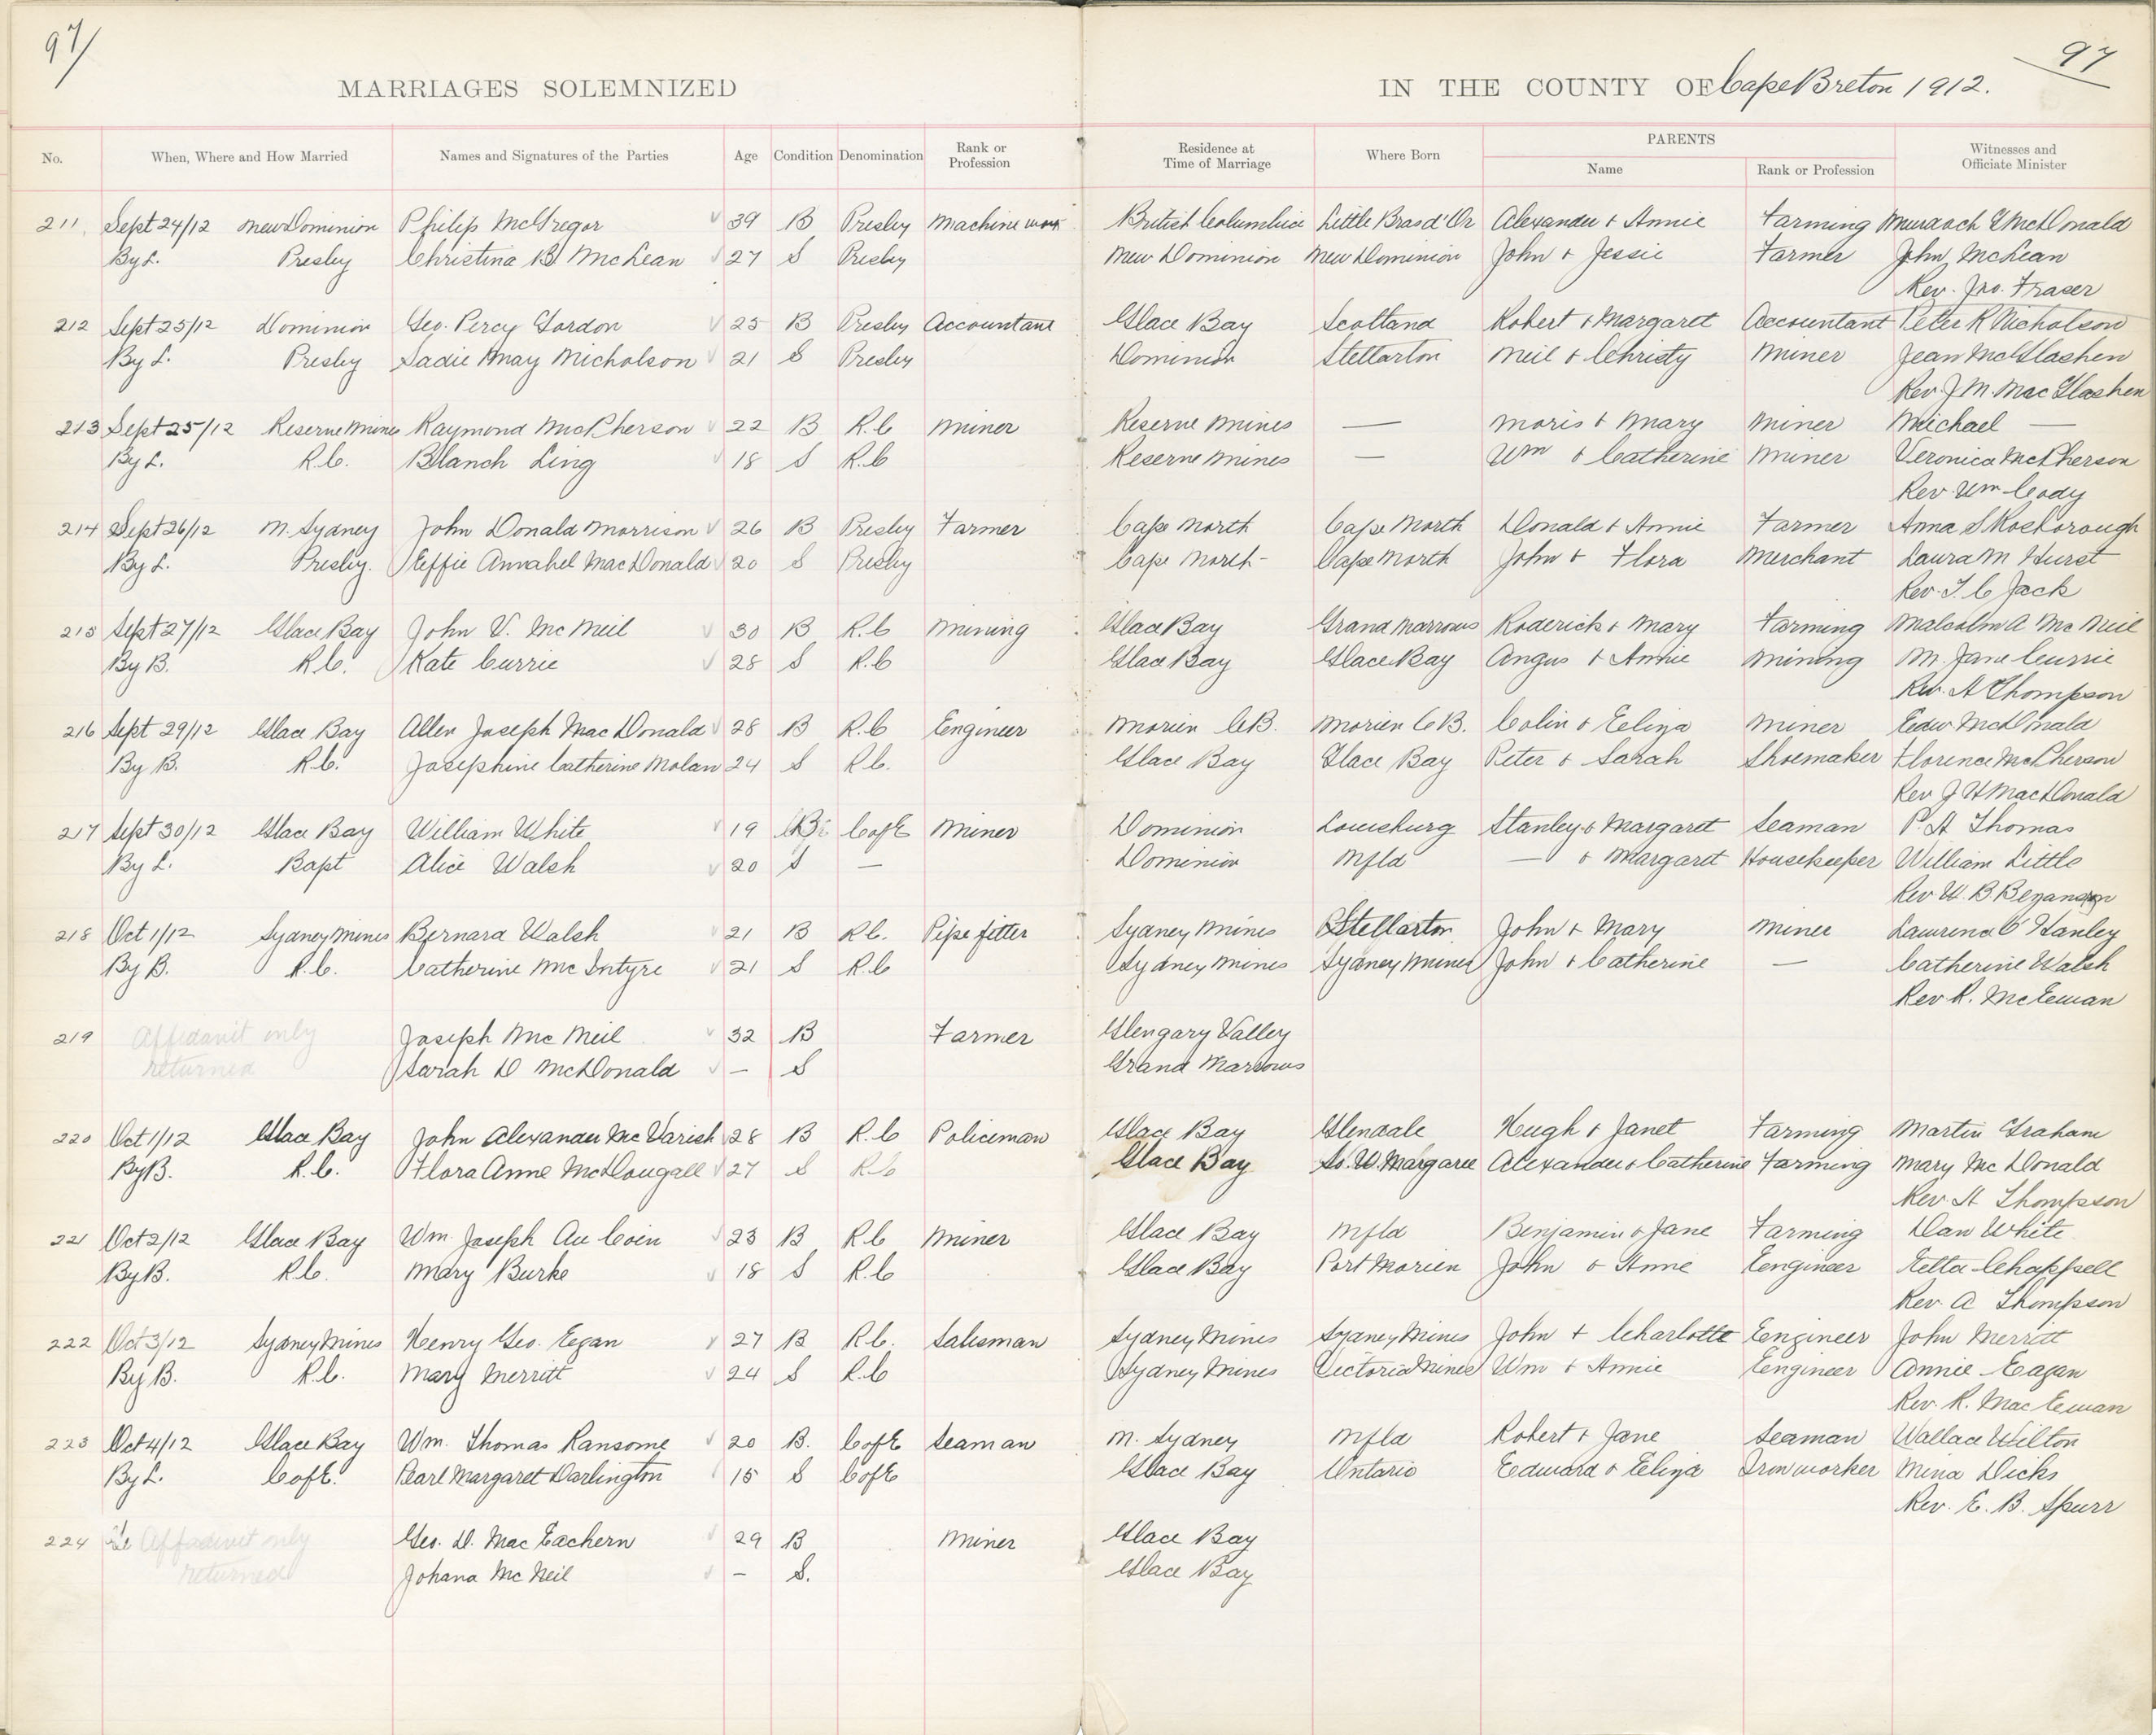 97/
97
MARRIAGES SOLEMNIZED IN THE COUNTY OF Cape Breton 1912.
No. When, Where and How Married Names and Signatures of the Parties Age Condition Denomination Rank or Profession Residence at Time of Marriage Where Born PARENTS Name Rank or Profession Witnesses and Officiate Minister
211 Sept 24/12 New Dominion Philip McGregor 39 B Presby Machine British Columbia Little Bras d'Or Alexander + Annie Farming Murdoch McDonald
By L. Presby Christina B McLean 27 S Presby New Dominion New Dominion John + Jessie Farmer John McLean
Rev. Jno. Fraser
212 Sept 25/12 Dominion Geo. Percy Gordon 25 B Presby Accountant Glace Bay Scotland Robert + Margaret Accountant Peter R Nicholson
By L. Presby Sadie May Nicholson 21 S Presby Dominion Stellarton Neil + Christy Miner Jean McGlashen
Rev. J M. MacGlashen
213 Sept 25/12 Reserve Mines Raymond McPherson 22 B R.C Miner Reserve Mines — Moris + Mary Miner Michael —
By L. R.C. Blanch Ling 18 S R.C Reserve Mines — Wm + Catherine Miner Veronica McPherson
Rev Wm Cody
214 Sept 26/12 N. Sydney John Donald Morrison 26 B Presby Farmer Cape North Cape North Donald + Annie Farmer Anna S Roseborough
By L. Presby. Effie Annabel MacDonald 20 S Presby Cape North Cape North John + Flora Merchant Laura M Hurst
Rev. T. C Jack
215 Sept 27/12 Glace Bay John V. McNeil 30 B R.C Mining Glace Bay Grand Narrows Roderick + Mary Farming Malcolm A McNeil
By B. R.C. Kate Currie 28 S R.C Glace Bay Glace Bay Angus + Annie Mining M. Jane Currie
Rev. A Thompson
216 Sept 29/12 Glace Bay Allen Joseph MacDonald 28 B R.C Engineer Morien C.B. Morien C B. Colin + Eeliza Miner Edw McDonald
By B. R.C. Josephine Catherine Nolan 24 S R.C. Glace Bay Glace Bay Peter + Sarah Shoemaker Florence McPherson
Rev J H MacDonald
217 Sept 30/12 Glace Bay William White 19 B C of E Miner Dominion Louisburg Stanley + Margaret Seaman P. A Thomas
By L. Bapt Alice Walsh 20 S — Dominion Nfld — + Margaret Housekeeper William Little
Rev W. B
218 Oct 1/12 Sydney Mines Bernard Walsh 21 B R.C. Pipe fitter Sydney Mines Stellarton John + Mary Miner Lawrence C Hanley
By B. R.C. Catherine McIntyre 21 S R.C Sydney Mines Sydney Mines John + Catherine — Catherine Walsh
Rev R. McEwan
219 Affidavit only Joseph McNeil 32 B Farmer Glengary Valley
returned Sarah D McDonald — S Grand Narrows
220 Oct 1/12 Glace Bay John Alexander McVarish 28 B R.C Policeman Glace Bay Glendale Hugh + Janet Farming Martin Graham
By B. R.C. Flora Anne McDougall 27 S R.C Glace Bay So. W. Margaree Alexander + Catherine Farming Mary McDonald
Rev. A Thompson
221 Oct 2/12 Glace Bay Wm. Joseph Au Coin 23 B R.C Miner Glace Bay Nfld Benjamin + Jane Farming Dan White
By B. R.C. Mary Burke 18 S R.C Glace Bay Port Morien John + Anne Engineer Etta Chappell
Rev. A Thompson
222 Oct 3/12 Sydney Mines Henry Geo. Egan 27 B R.C. Salesman Sydney Mines Sydney Mines John + Charlotte Engineer John Merritt
By B. R.C. Mary Merritt 24 S R.C Sydney Mines Victoria Mines Wm + Annie Engineer Annie Eagan
Rev. R. MacEwan
223 Oct 4/12 Glace Bay Wm. Thomas Ransome 20 B. C of E Seaman N. Sydney Nfld Robert + Jane Seaman Wallace Wilton
By L. C of E. Pearl Margaret Darlington 15 S C of E Glace Bay Ontario Edward + Eliza Iron worker Mina Dicks
Rev. E. B. Spurr
224 Affidavit only Geo. D. MacEachern 29 B Miner Glace Bay
returned Johana McNeil — S. Glace Bay